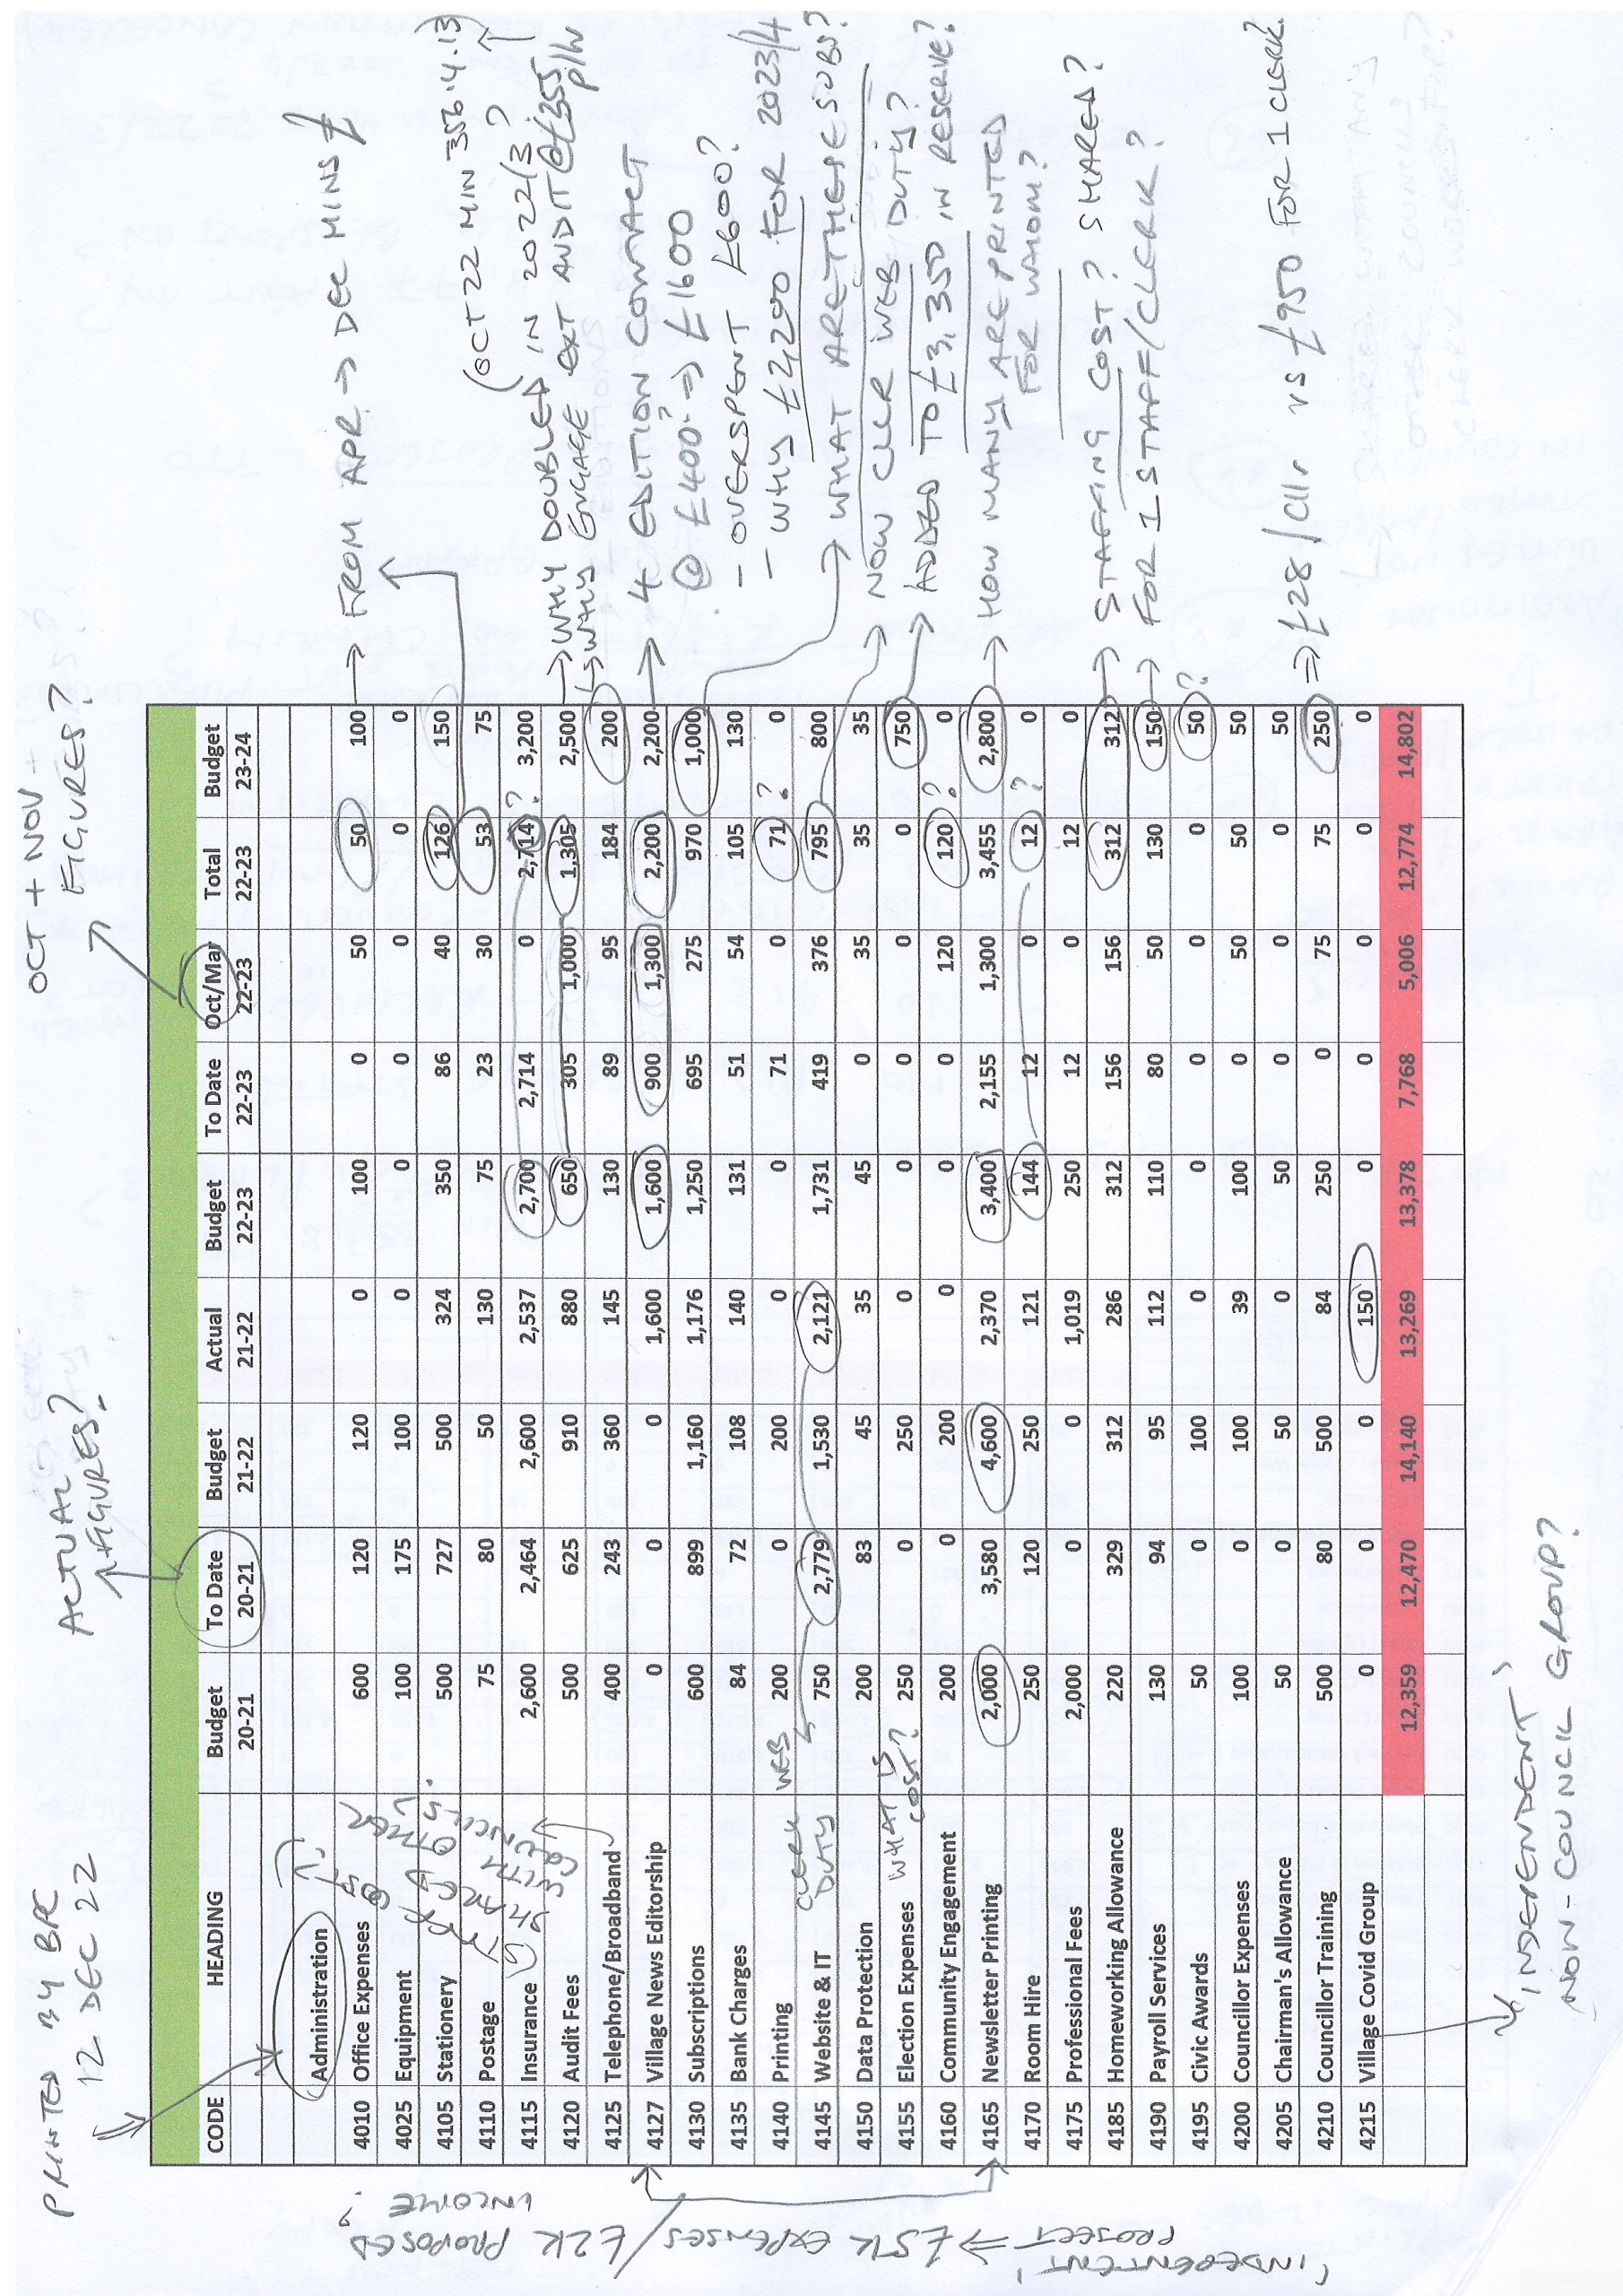 PRINTED BY BPC
12 DEC 22
ACTUAL?
FIGURES?
OCT + NOV
FIGURES?
CODE HEADING Budget 20-21 To Date 20-21 Budget 21-22 Actual 21-22 Budget 22-23 To Date 22-23 Oct/Mar 22-23 Total 22-23 Budget 23-24
Administration
4010 Office Expenses 600 120 120 0 100 0 50 50 100
4025 Equipment 100 175 100 0 0 0 0 0 0
4105 Stationery 500 727 500 324 350 86 40 126 150
4110 Postage 75 80 50 130 75 23 30 53 75
4115 Insurance 2,600 2,464 2,600 2,537 2,700 2,714 0 2,714 ? 3,200
4120 Audit Fees 500 625 910 880 650 305 1,000 1,305 2,500
4125 Telephone/Broadband 400 243 360 145 130 89 95 184 200
4127 Village News Editorship 0 0 0 1,600 1,600 900 1,300 2,200 2,200
4130 Subscriptions 600 899 1,160 1,176 1,250 695 275 970 1,000
4135 Bank Charges 84 72 108 140 131 51 54 105 130
4140 Printing 200 0 200 0 0 71 0 71 ? 0
4145 Website & IT 750 2,779 1,530 2,121 1,731 419 376 795 800
4150 Data Protection 200 83 45 35 45 0 35 35 35
4155 Election Expenses 250 0 250 0 0 0 0 0 750
4160 Community Engagement 200 0 200 0 0 0 120 120 ? 0
4165 Newsletter Printing 2,000 3,580 4,600 2,370 3,400 2,155 1,300 3,455 2,800
4170 Room Hire 250 120 250 121 144 12 0 12 ? 0
4175 Professional Fees 2,000 0 0 1,019 250 12 0 12 0
4185 Homeworking Allowance 220 329 312 286 312 156 156 312 312
4190 Payroll Services 130 94 95 112 110 80 50 130 150
4195 Civic Awards 50 0 100 0 0 0 0 0 50 ?
4200 Councillor Expenses 100 0 100 39 100 0 50 50 50
4205 Chairman's Allowance 50 0 50 0 50 0 0 0 50
4210 Councillor Training 500 80 500 84 250 0 75 75 250
4215 Village Covid Group 0 0 0 150 0 0 0 0 0
12,359 12,470 14,140 13,269 13,378 7,768 5,006 12,774 14,802
SHARED
WITH
OTHER
COUNCILS
CLERK WEB
DUTY
WHAT IS
COST?
→ FROM APR → DEC MINS
(OCT 22 MIN 356.4.13)
→ WHY DOUBLED IN 2022/3?
→ WHY ENGAGE EXT AUDIT @ £355
→ 4 EDITION CONTRACT
@ £400 ⇒ £1600
- OVERSPENT £600?
- WHY £2,200 FOR 2023/4
→ WHAT ARE THESE SUBS?
→ NOW CLLR WEB DUTY?
→ ADDED TO £3,350 IN RESERVE?
→ HOW MANY ARE PRINTED
FOR WHOM?
→ STAFFING COST? SHARED?
→ FOR 1 STAFF/CLERK?
⇒ £28/Cllr vs £950 FOR 1 CLERK?
'INDEPENDENT'
PROJECT ⇒ £5K EXPENSES / £2K PROPOSED
INCOME?
'INDEPENDENT'
NON-COUNCIL GROUP?